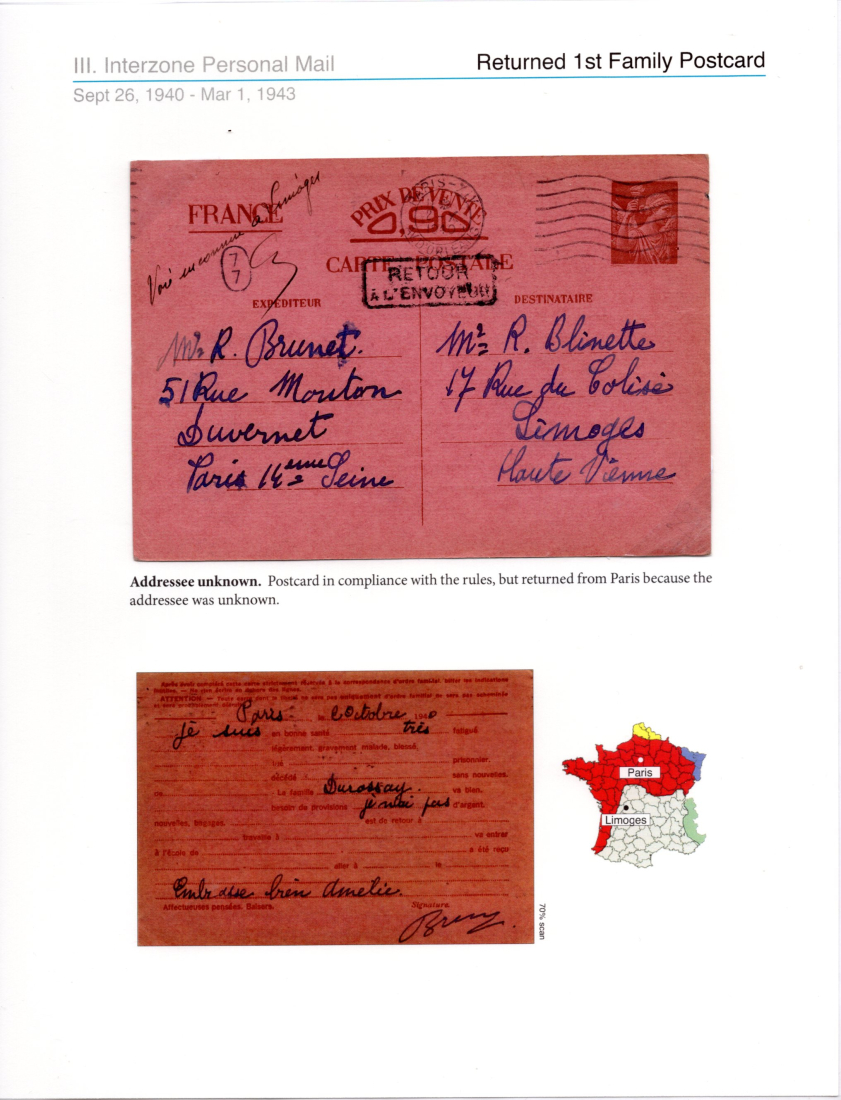 III. Interzone Personal Mail
Returned 1st Family Postcard
Sept 26, 1940 - Mar 1, 1943
Limoges
FRANCE
PRIX DE VENTE
0,90
CARTE POSTALE
7
7
RETOUR
À L'ENVOYEUR
EXPÉDITEUR
DESTINATAIRE
R. Brunet.
51 Rue Mouton
Duvernet
Paris 14eme Seine
Mr R. Blinette
17 Rue du Colisé
Limoges
Haute Vienne
Addressee unknown. Postcard in compliance with the rules, but returned from Paris because the
addressee was unknown.
ATTENTION.
Paris le Octobre 1940
je suis en bonne santé très fatigué
légèrement, gravement malade, blessé,
tué prisonnier.
décédé sans nouvelles.
La famille va bien.
besoin de provisions d'argent.
nouvelles, bagages. est de retour à
travaille à va entrer
à l'école de a été reçu
aller à le
Embrasse bien Amelie.
Affectueuses pensées. Baisers.
Signature.
70% scan
Paris
Limoges